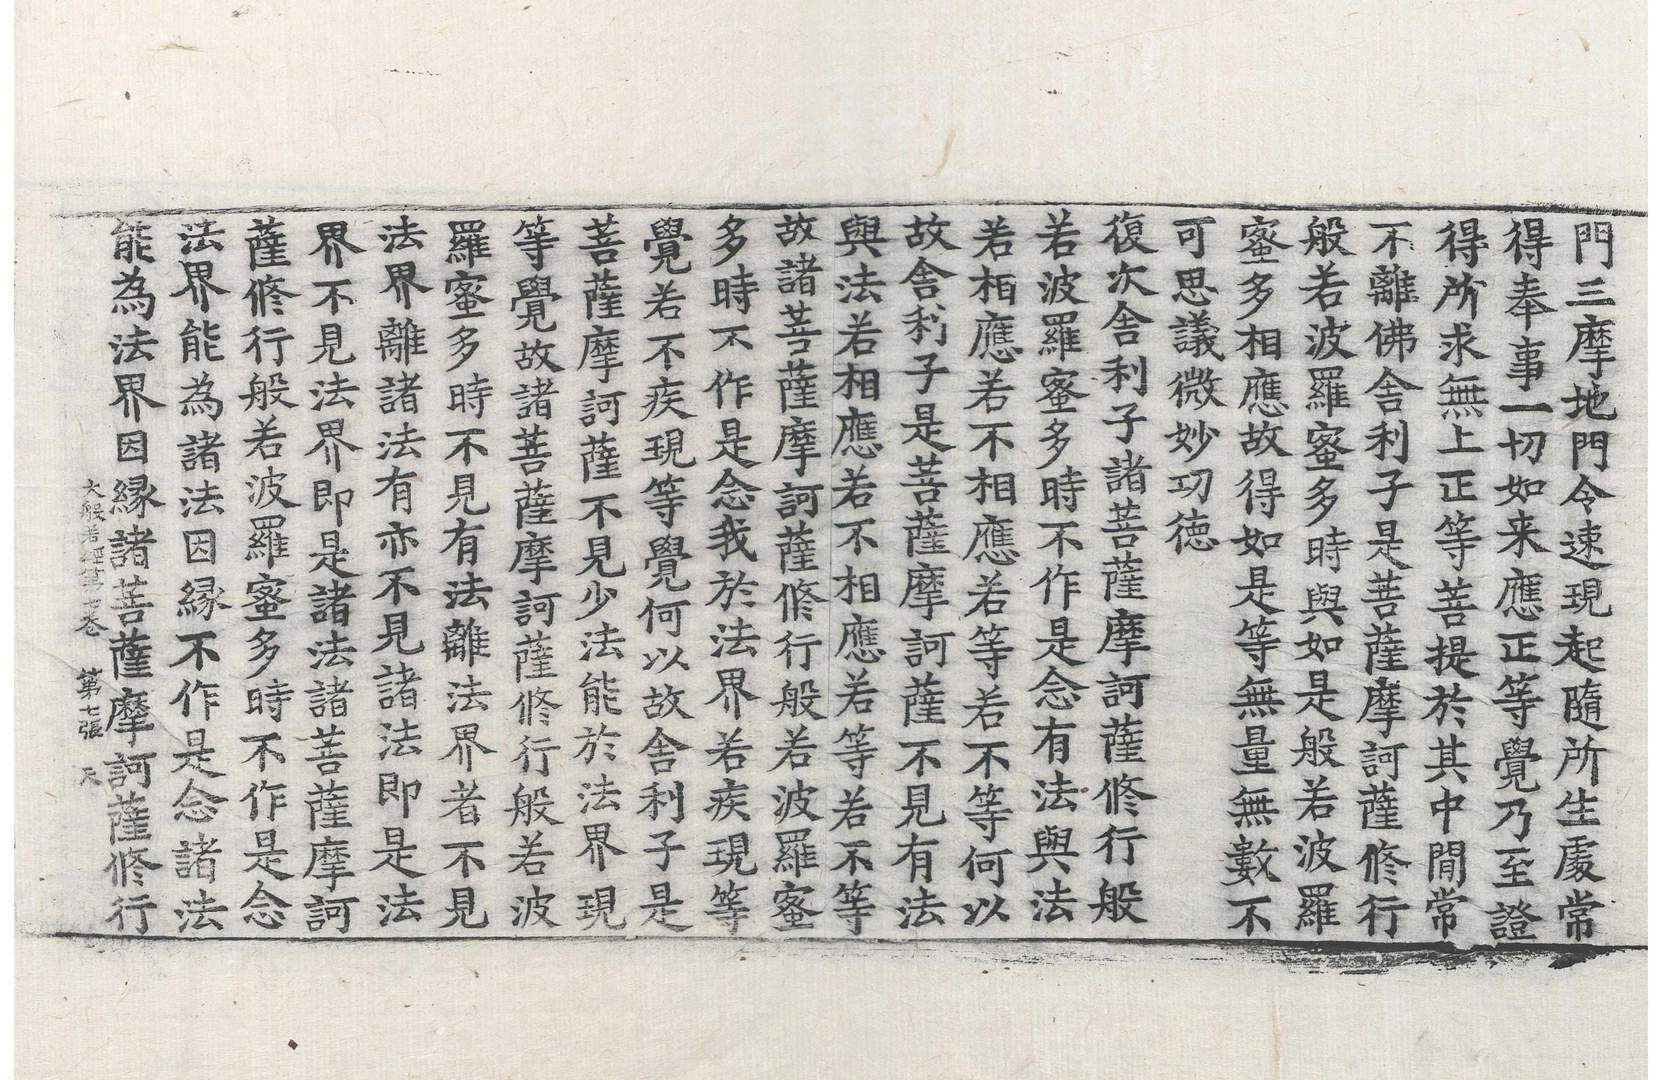 門三摩地門令速現起隨所生處常
得奉事一切如来應正等覺乃至證
得所求無上正等菩提於其中間常
不離佛舍利子是菩薩摩訶薩修行
般若波羅蜜多時與如是般若波羅
蜜多相應故得如是等無量無數不
可思議微妙功徳
復次舍利子諸菩薩摩訶薩修行般
若波羅蜜多時不作是念有法與法
若相應若不相應若等若不等何以
故舍利子是菩薩摩訶薩不見有法
與法若相應若不相應若等若不等
故諸菩薩摩訶薩修行般若波羅蜜
多時不作是念我於法界若疾現等
覺若不疾現等覺何以故舍利子是
菩薩摩訶薩不見少法能於法界現
等覺故諸菩薩摩訶薩修行般若波
羅蜜多時不見有法離法界者不見
法界離諸法有亦不見諸法即是法
界不見法界即是諸法諸菩薩摩訶
薩修行般若波羅蜜多時不作是念
法界能為諸法因緣不作是念諸法
能為法界因緣諸菩薩摩訶薩修行
大般若經第七卷　第七張　天